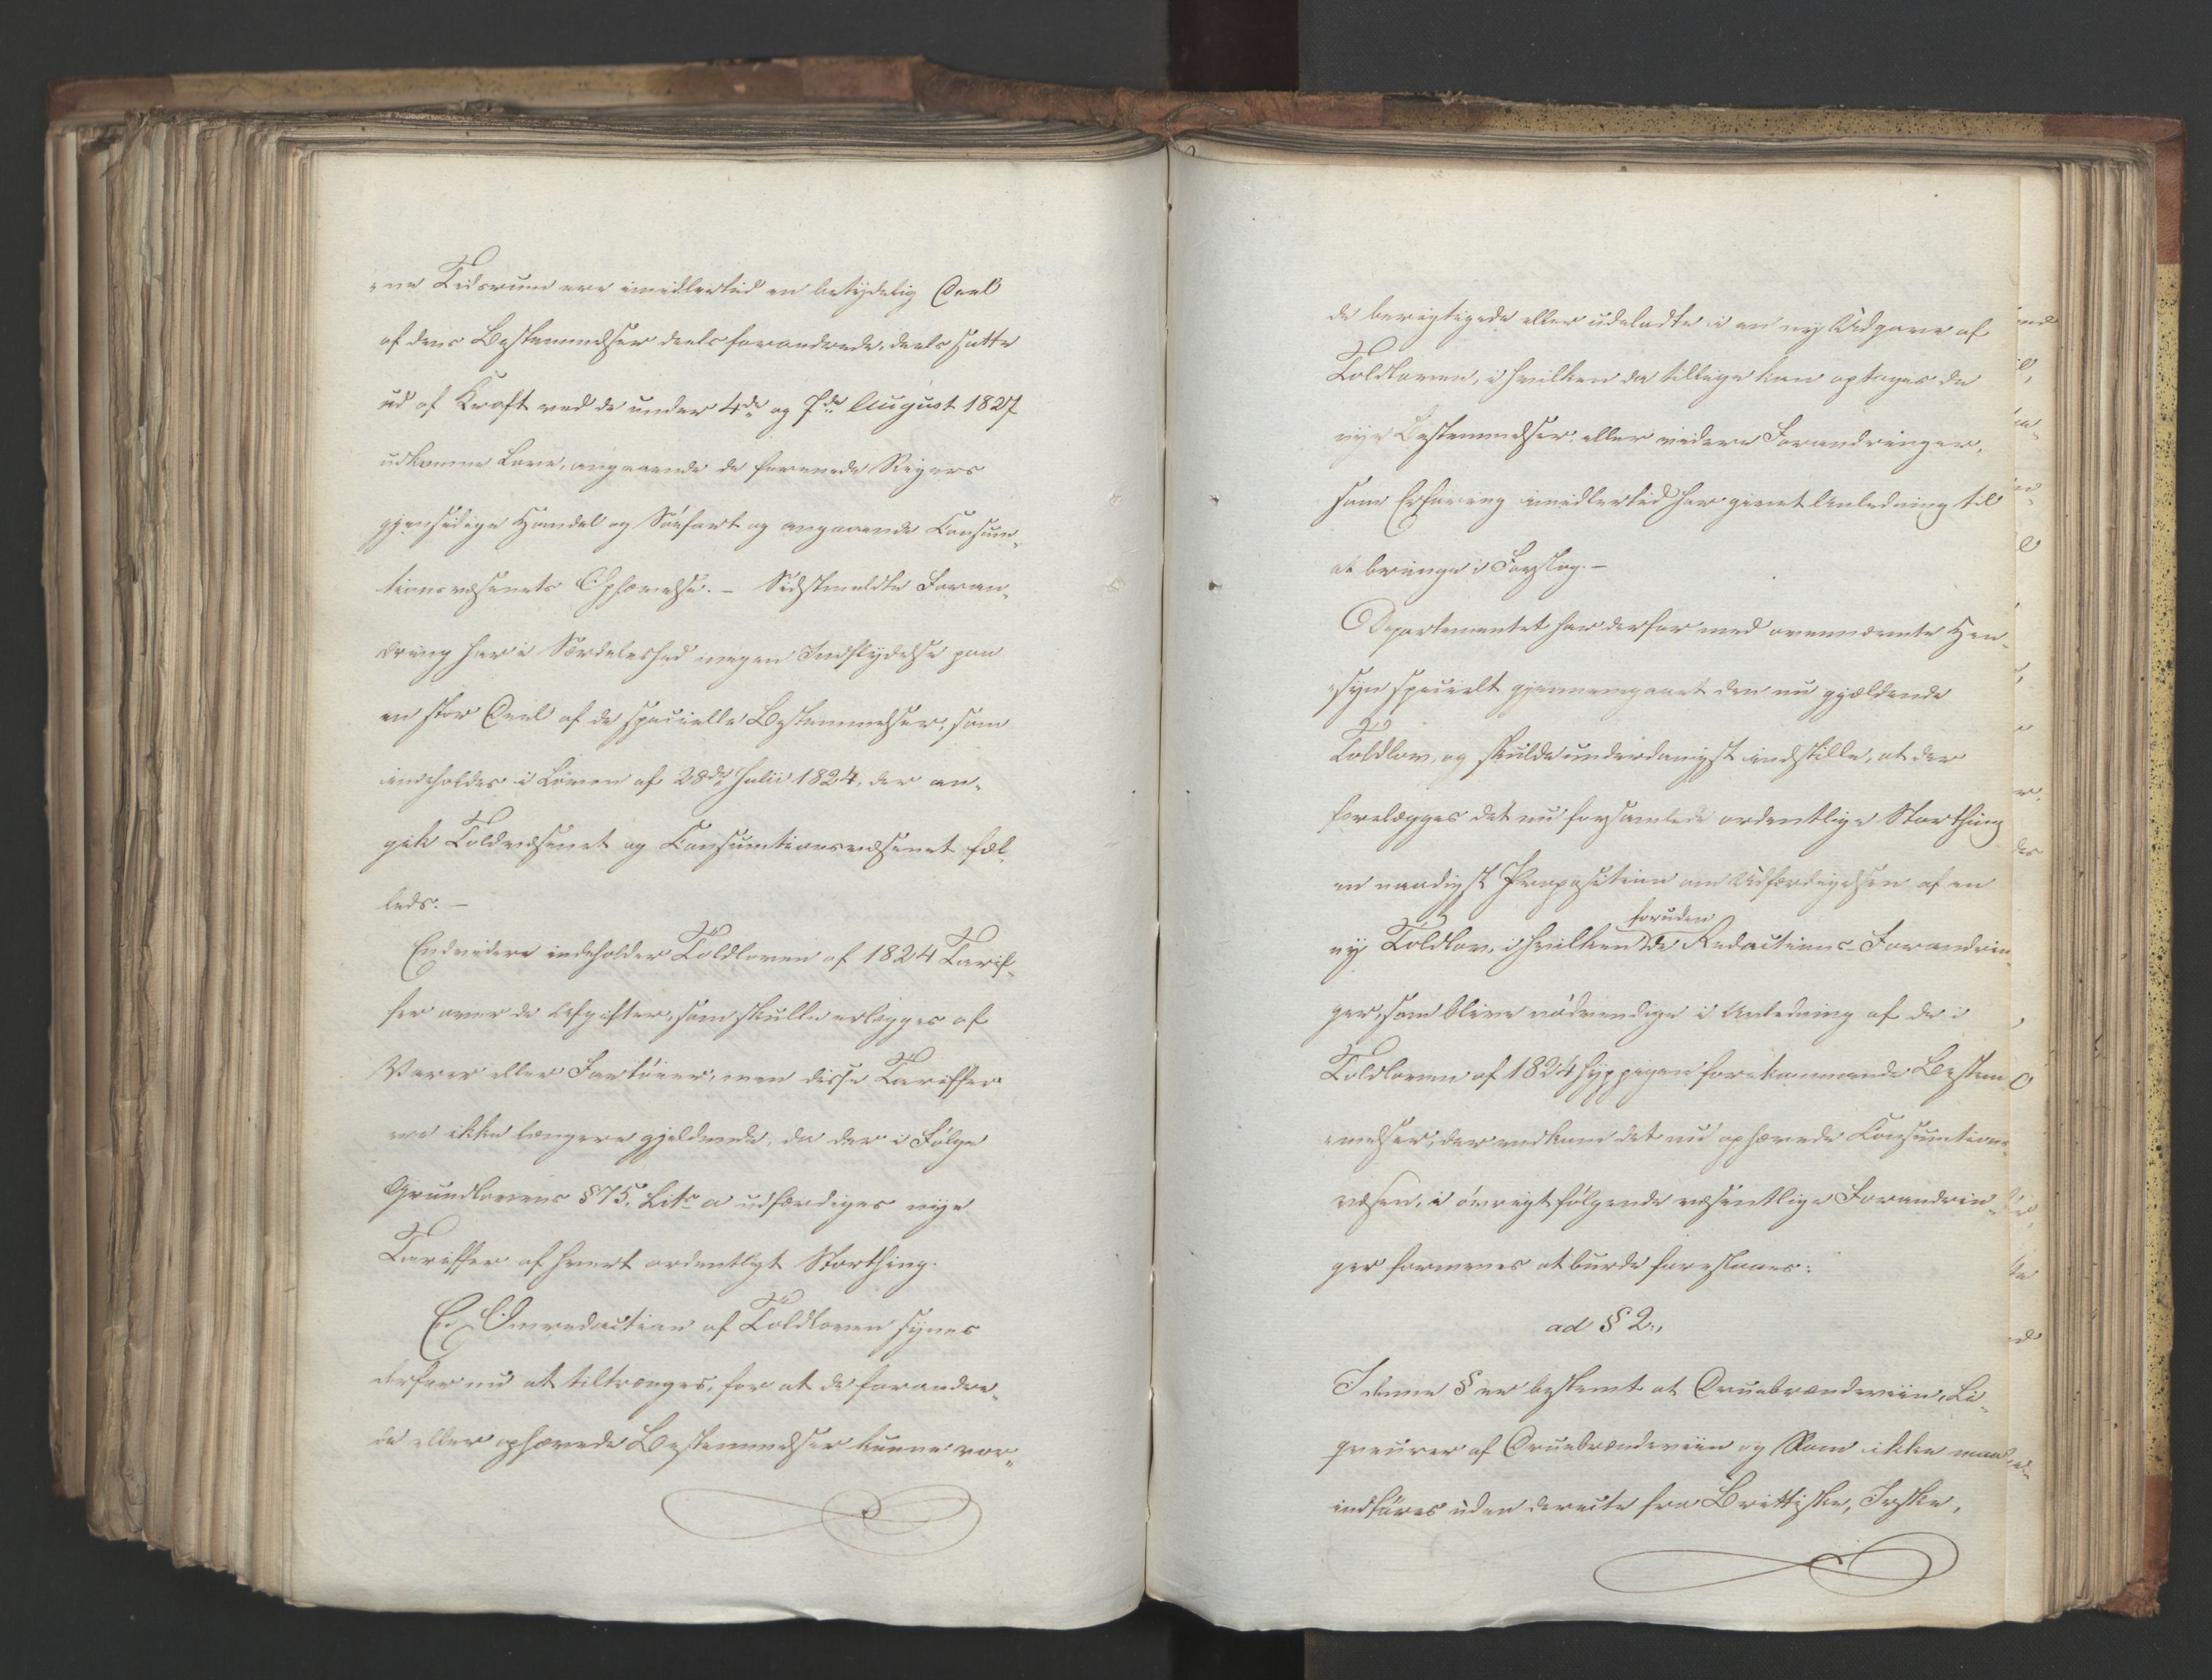 „ne Tidsrum ere imidlertid en betydelig Deel
af dens Bestemmelser deels forandrede, deels satte
ud af Kraft ved de under 4de og 7de August 1827
udkomne Love, angaaende de forenede Rigers
gjensidige Handel og Söefart og angaaende Consum„
tionsvæsenets Ophævelse. – Sidstmeldte Foran„
dring har i Særdeleshed megen Indflydelse paa
en stor Deel af de specielle Bestemmelser, som
indeholdes i Loven af 28de Julii 1824, der an„
gik Toldvæsenet og Consumtionsvæsenet fæl„
leds. –
Endvidere indeholder Toldloven af 1824 Tarif„
fer over de Afgifter, som skulle erlægges af
Varer eller Fartöier, men disse Tariffer
ere ikke længere gjeldende, da der i Fölge
Grundlovens § 75. Litr a udfærdiges nye
Tariffer af hvert ordentligt Storthing.
En Omredaction af Toldloven synes
derfor nu at tiltrænges, for at de forandre„
de eller ophævede Bestemmelser kunne vor„
de berigtigede eller udeladte i en ny Udgave af
Toldloven, i hvilken da tillige kan optages de
nye Bestemmelser eller videre Forandringer,
som Erfaring imidlertid har givet Anledning til
at bringe i Forslag. –
Departementet har derfor med ovennævnte Hen„
„syn specielt gjennemgaaet den nu gjældende
Toldlov, og skulde underdanigst indstille, at der
forelægges det nu forsamlede ordentlige Storthing
en naadigst Proposition om Udfærdigelsen af en
foruden
ny Toldlov, i hvilken de Redactions-Forandrin„
ger, som blive nödvendige i Anledning af de i
Toldloven af 1824 hyppigen forekommende Bestem
„melser, der vedkom det nu ophævede Consumtions„
væsen, i övrigt fölgende væsentlige Forandrin„
ger formenes at burde foreslaaes:
ad § 2.,
I denne § er bestemt at Druebrændeviin, Li„
queurer af Druebrændeviin og Rom ikke maae
indföres uden directe fra Brittiske, Irske,